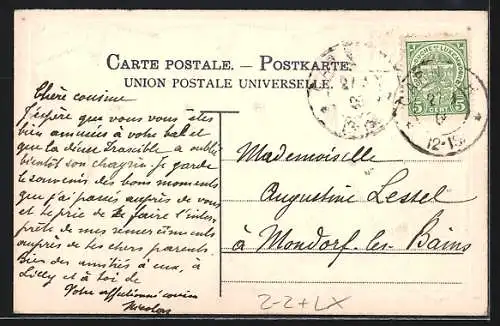 CARTE POSTALE. — POSTKARTE.
UNION POSTALE UNIVERSELLE.
Chère cousine
J'espère que vous vous êtes
bien amusées à votre bal et
que la douce Irascible a oublié
bientôt son chagrin. Je garde
le souvenir des bons moments
que j'ai passés auprès de vous
et te prie de te faire l'inter-
prète de mes remerciments
auprès de tes chers parents.
Bien des amitiés à eux, à
Lilly et à toi de
Votre affectionné cousin
Nicolas
Mademoiselle
Augustine Lessel
à Mondorf-les-Bains
5 5
12-1
2-2+LX